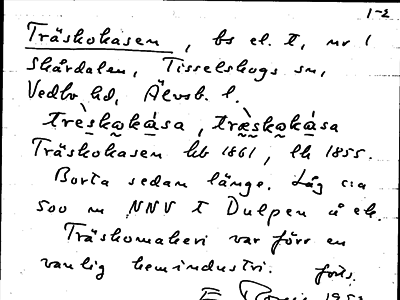 1-2
Träskokasen, bs el. t, nr 1
Skårdalen, Tisselskogs sn,
Vedbo hd, Älvsb. l.
trèskωkása, træ̀skωkása
Träskokasen hb 1861, lk 1855.
Borta sedan länge. Låg c:a
500 m NNV t Dulpen å ek.
Träskomakeri var förr en
vanlig hemindustri. forts.
E